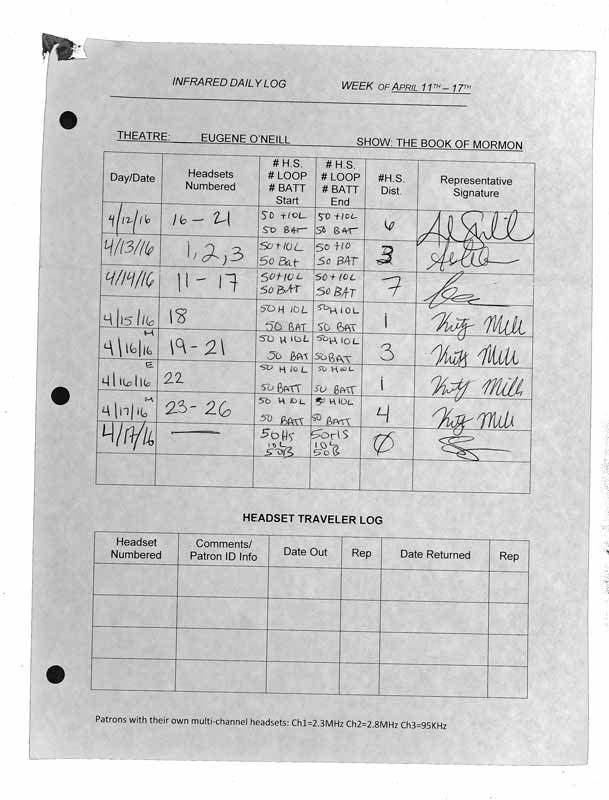 INFRARED DAILY LOG WEEK OF APRIL 11TH – 17TH
THEATRE: EUGENE O'NEILL SHOW: THE BOOK OF MORMON
Day/Date Headsets Numbered # H.S. # LOOP # BATT Start # H.S. # LOOP # BATT End #H.S. Dist. Representative Signature
4/12/16 16 – 21 50 +10L 50 BAT 50 +10L 50 BAT 6
4/13/16 1, 2, 3 50+10L 50 Bat 50 +10 50 BAT 3
4/14/16 11 – 17 50+10L 50 BAT 50+10L 50 BAT 7
4/15/16 18 50 H 10L 50 BAT 50H 10L 50 BAT 1
4/16/16 M 19 – 21 50 H 10L 50 BAT 50H 10L 50 BAT 3
4/16/16 E 22 50 H 10L 50 BATT 50 H 10L 50 BATT 1
4/17/16 M 23 – 26 50 H 10L 50 BATT 50 H 10L 50 BATT 4
4/17/16 — 50HS 10L 50B 50HS 10L 50B 0
HEADSET TRAVELER LOG
Headset Numbered Comments/ Patron ID Info Date Out Rep Date Returned Rep
Patrons with their own multi-channel headsets: Ch1=2.3MHz Ch2=2.8MHz Ch3=95KHz